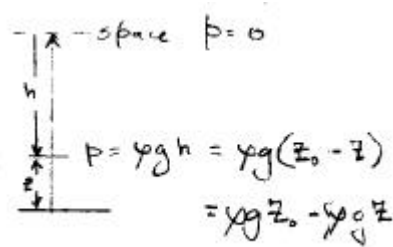 space p = 0
h
p = ρgh = ρg(z₀ - z)
z
= ρgz₀ - ρgz